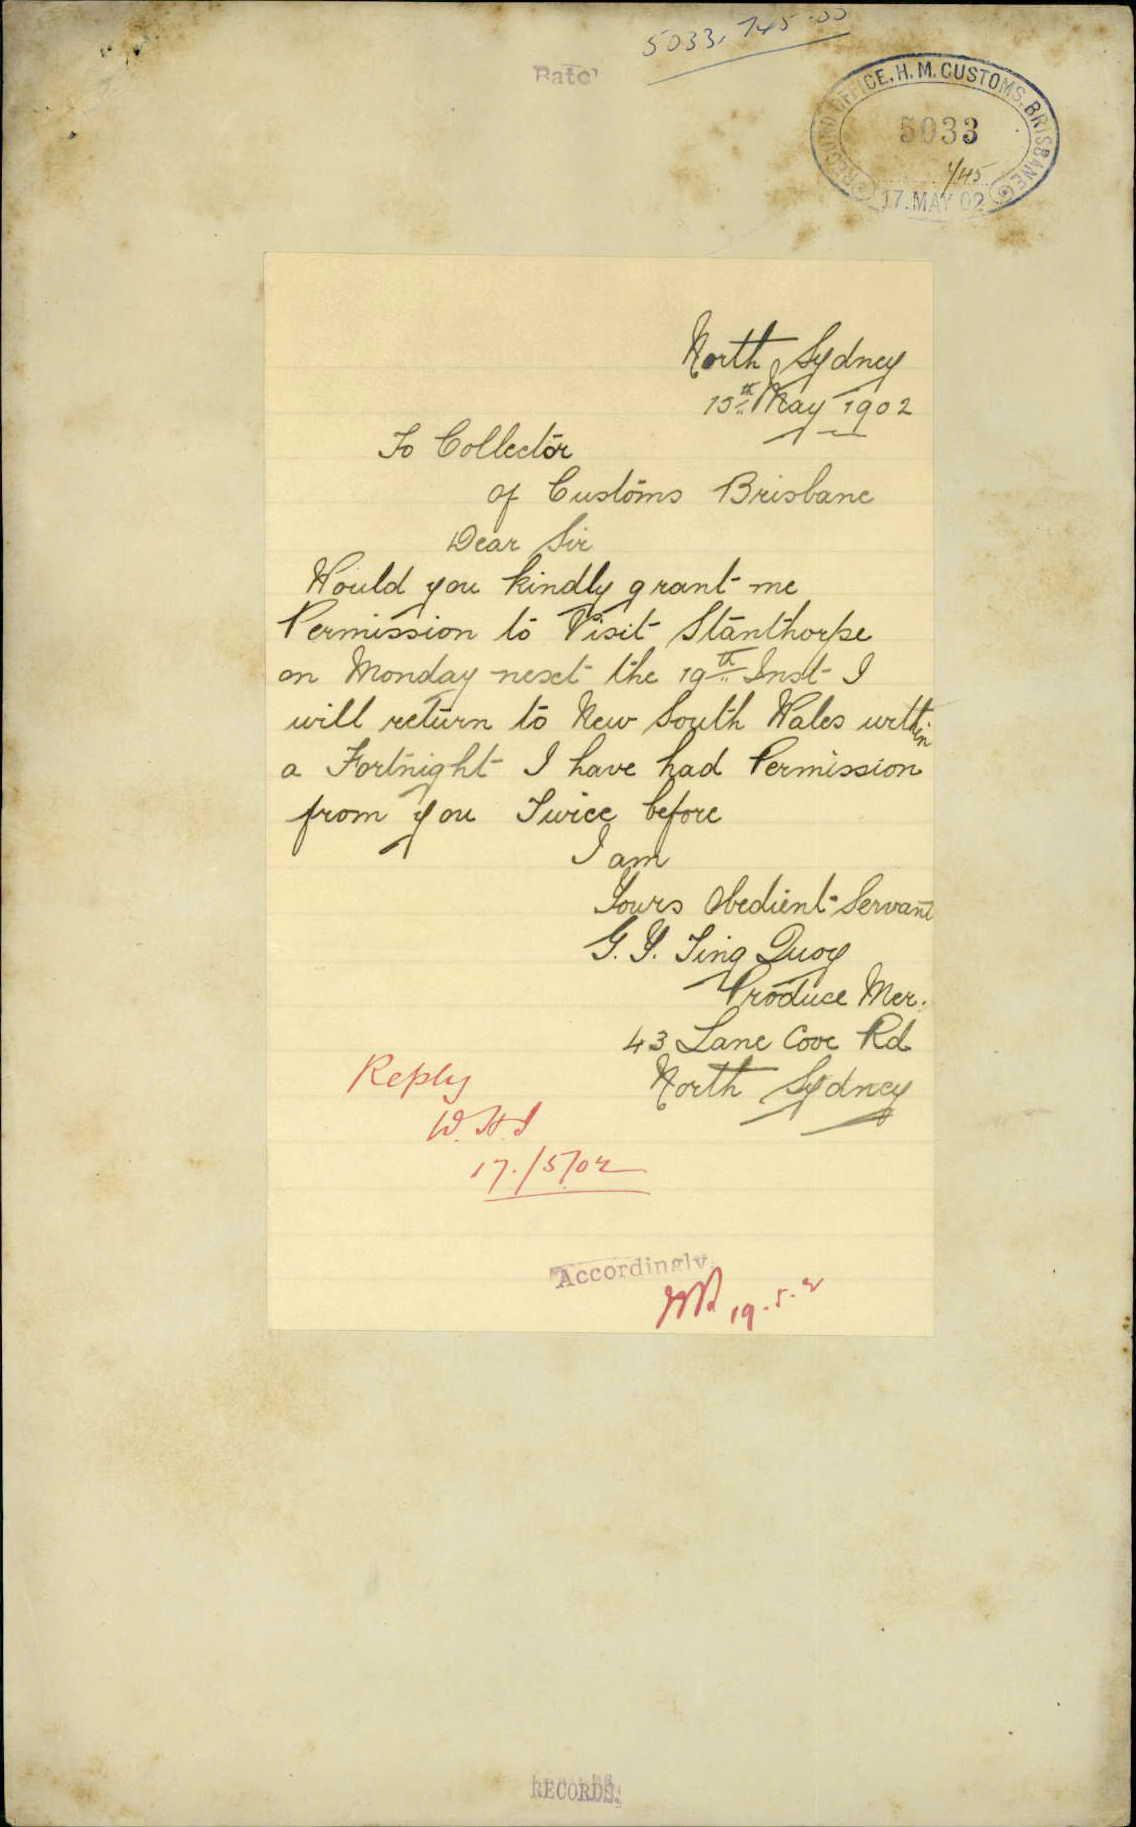 5033, 745.00
RECORD OFFICE. H. M. CUSTOMS. BRISBANE
5033
1/45
17. MAY 02
North Sydney
15th May 1902
To Collector
of Customs Brisbane
Dear Sir
Would you kindly grant me
Permission to Visit Stanthorpe
on Monday next the 19th Inst I
will return to New South Wales within
a Fortnight I have had Permission
from you Twice before
I am
Yours Obedient Servant
G. Y. Ting Quoy
Produce Mer.
43 Lane Cove Rd
North Sydney
Reply
17./5/02
Accordingly.
19.5.2
RECORDS.